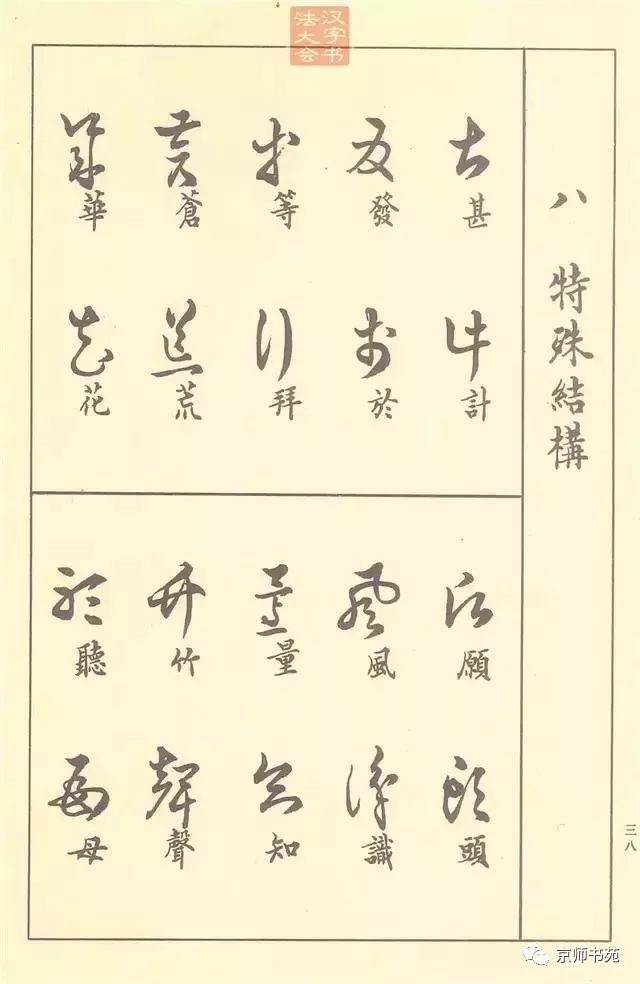 汉字书
法大会
八 特殊結構
甚 計
發 於
等 拜
蒼 荒
華 花
願 頭
風 識
量 知
竹 聲
聽 母
三八
京师书苑